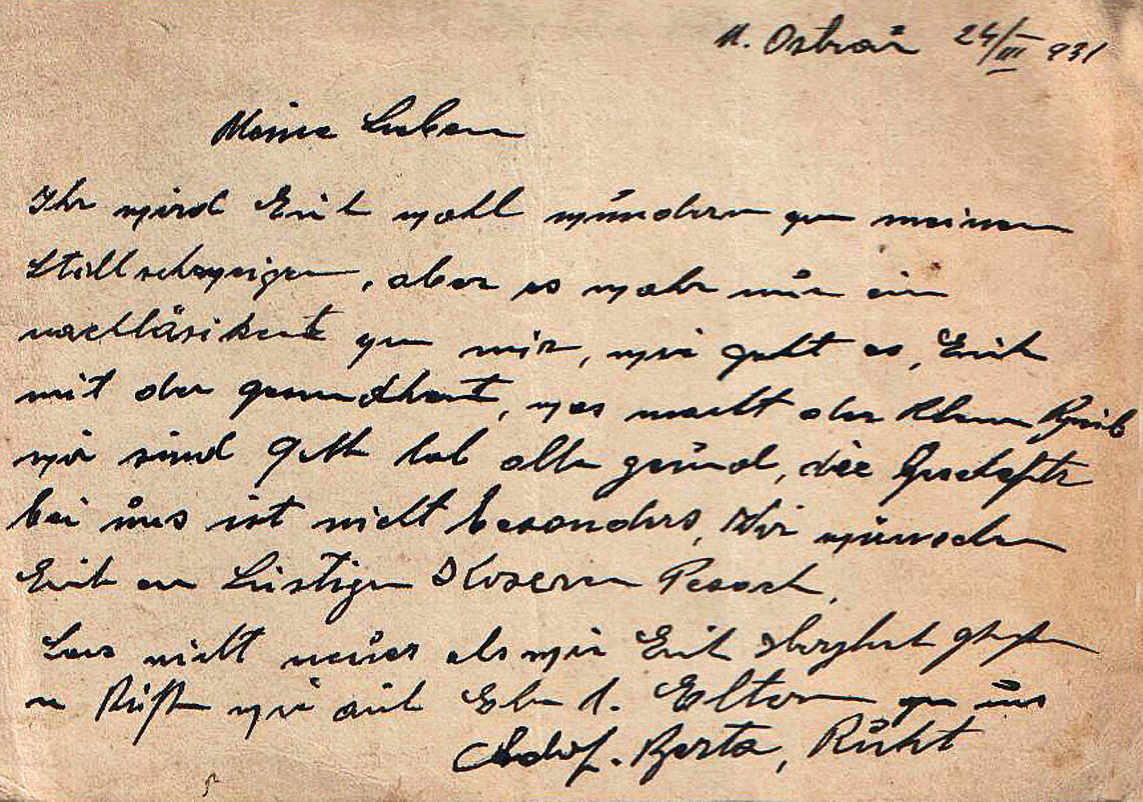 M. Ostrau 24/III 931
Meine Lieben
Ihr wird Euch wohl wundern von meinen
Stillschweigen, aber es wahr nur ein
nachläsikeit von mir, wie geht es, Euch
mit der gesundheit, was macht der kleine
wir sind Gott lob alle gesund, die Geschefte
bei uns ist nicht besonders, Wir wünschen
Euch en Lustigen Koseren Pesach,
nicht neues als wir Euch Herzlich
u Küssen wir auch Ebn l. Eltern von uns
Adolf. Berta, Ruht